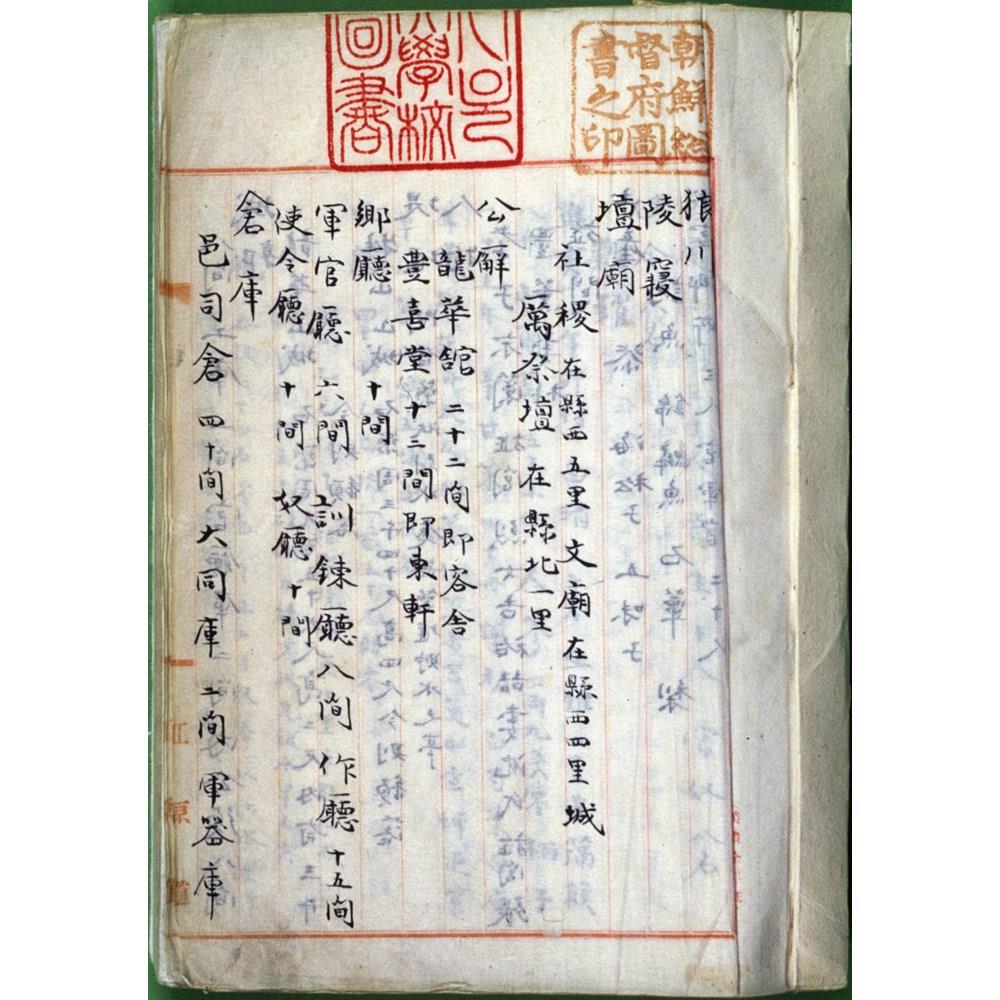 朝鮮總
督府圖
書之印
學校
圖書
狼川
陵寢
壇廟
社稷 在縣西五里 文廟 在縣西四里 城
厲祭壇 在縣北一里
公廨
龍華館 二十二間即客舍
豊喜堂 十三間即東軒
鄕廳 十間
軍官廳 六間 訓鍊廳 八間 作廳 十五間
使令廳 十間 奴廳 十間
倉庫
邑司倉 四十間 大同庫 二間 軍器庫
江原道